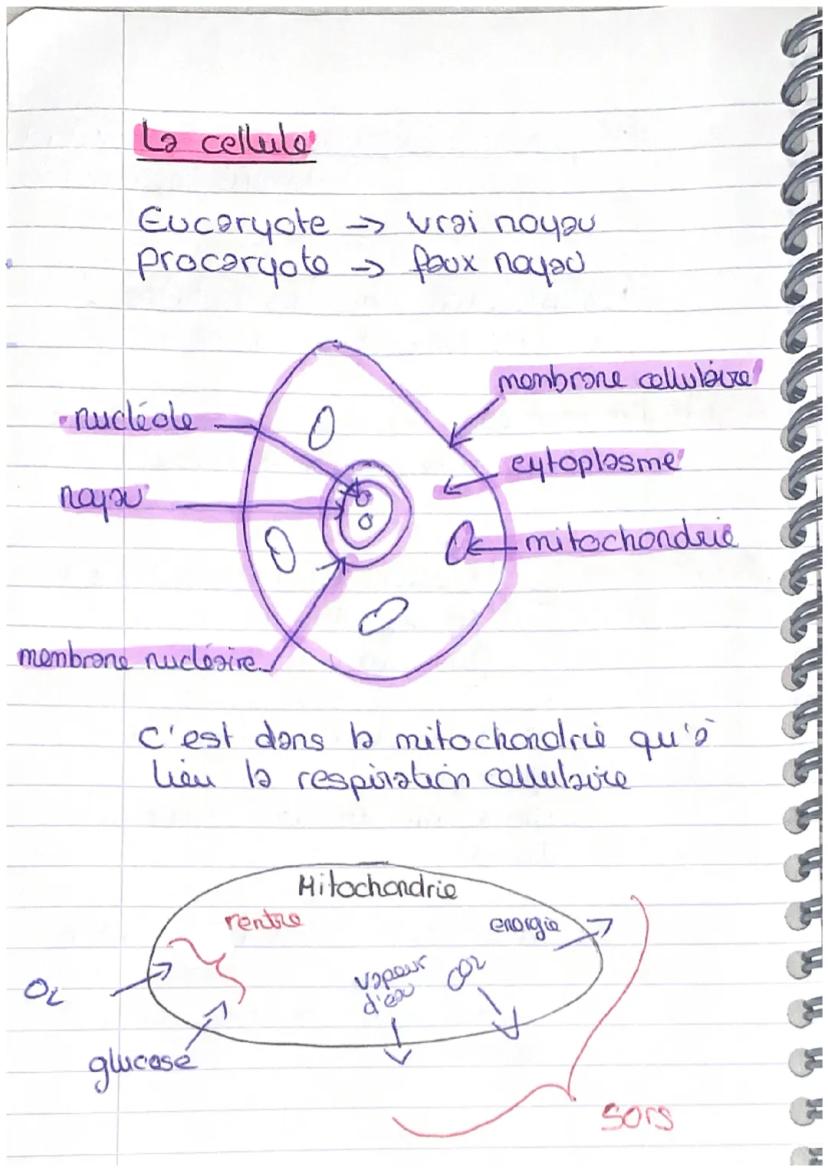 La cellule
Eucaryote → vrai noyau
Procaryote → faux noyau
membrane cellulaire
nucléole
cytoplasme
noyau
mitochondrie
membrane nucléaire
c'est dans la mitochondrie qu'à
lieu la respiration cellulaire
Mitochondrie
rentre
energie
O2
vapeur
d'eau
CO2
glucose
sors